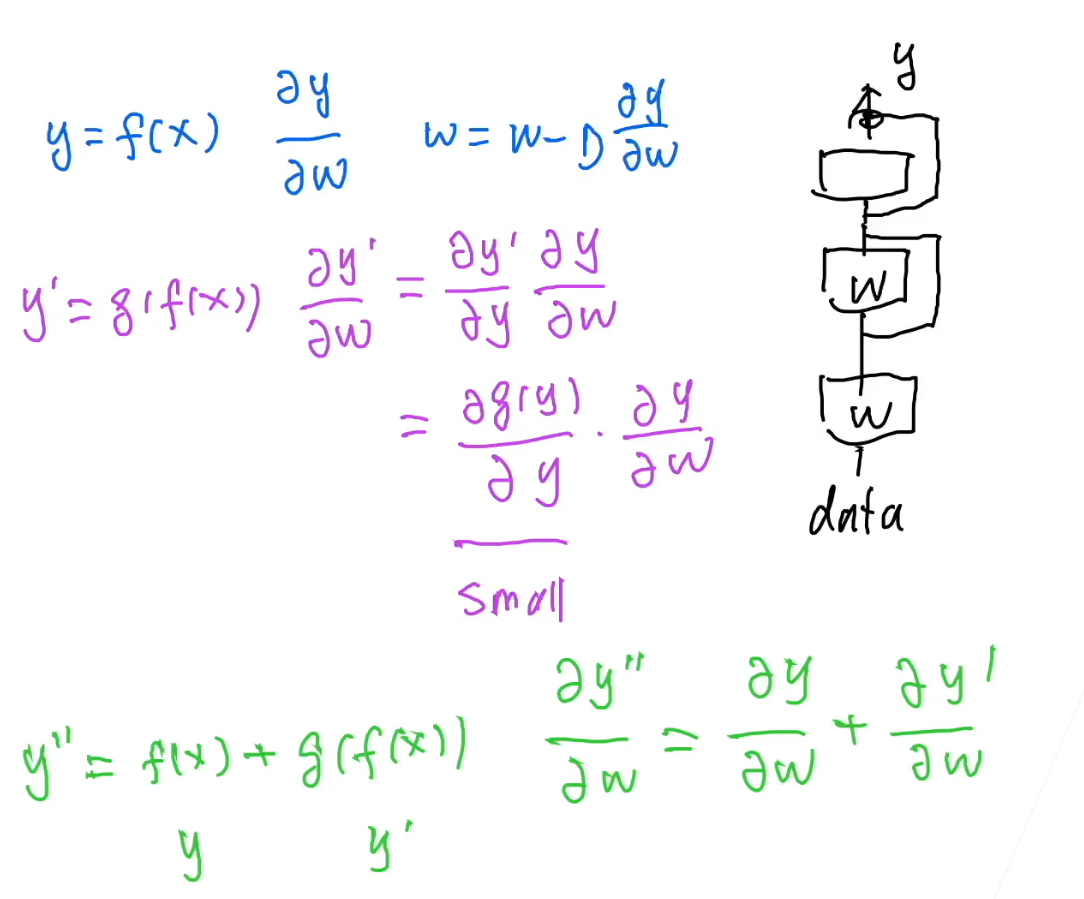 y = f(x) ∂y/∂w w = w - D ∂y/∂w
y' = g(f(x)) ∂y'/∂w = ∂y'/∂y ∂y/∂w
= ∂g(y)/∂y · ∂y/∂w
small
y'' = f(x) + g(f(x)) ∂y''/∂w = ∂y/∂w + ∂y'/∂w
y y'
y
w
w
data